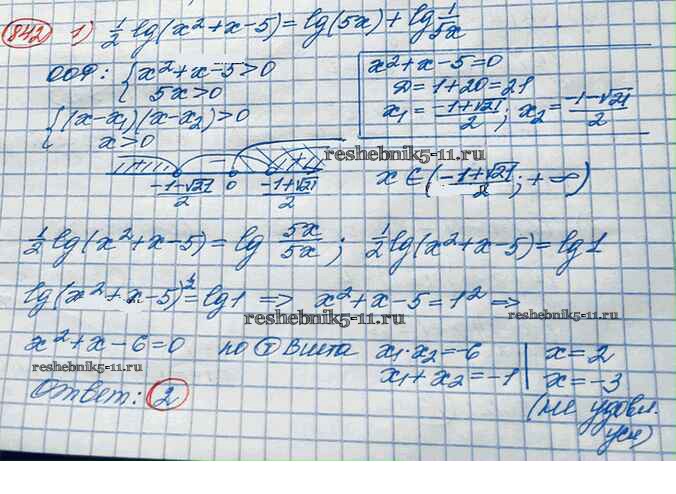 842 1) 1/2 lg(x²+x-5) = lg(5x) + lg 1/5x
ООФ: { x²+x-5>0
5x>0
{ (x-x₁)(x-x₂)>0
x>0
x²+x-5=0
D=1+20=21
x₁ = (-1+√21)/2 ; x₂ = (-1-√21)/2
+ - +
(-1-√21)/2 0 (-1+√21)/2
reshebnik5-11.ru
x ∈ ((-1+√21)/2 ; +∞)
1/2 lg(x²+x-5) = lg 5x/5x ; 1/2 lg(x²+x-5) = lg1
lg(x²+x-5)^1/2 = lg1 => x²+x-5=1² =>
reshebnik5-11.ru
x²+x-6=0 по Т Виета x₁·x₂=-6 | x=2
reshebnik5-11.ru
x₁+x₂=-1 | x=-3
Ответ: 2
(не удовл.
усл)
reshebnik5-11.ru